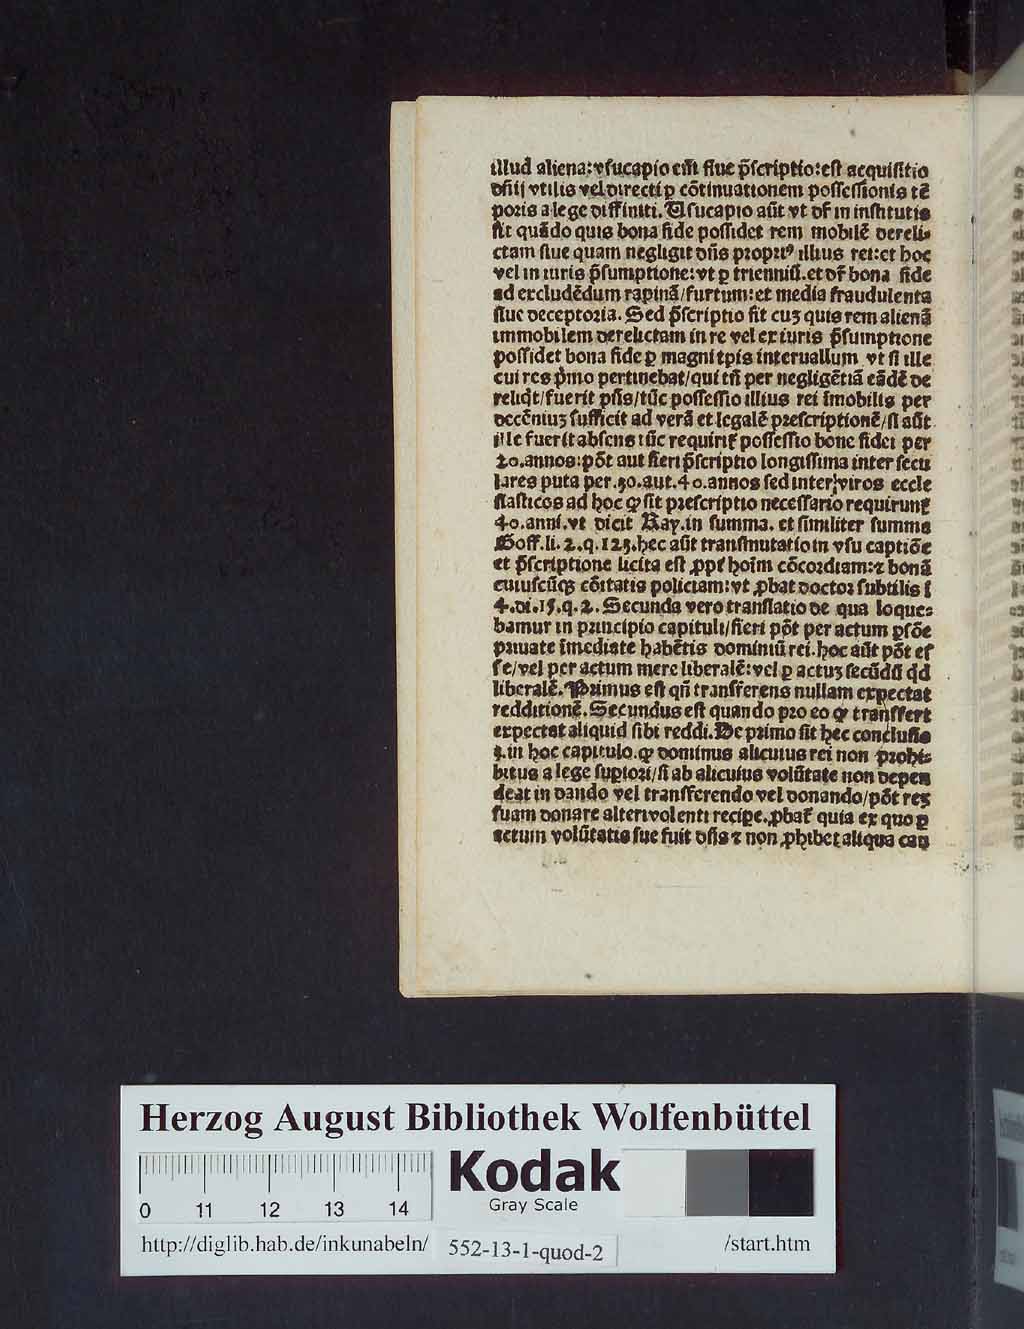 illud aliena: vſucapio em̄ ſiue p̄ſcriptio: eſt acquiſitio
dn̄ij vtilis vel directi ꝑ cōtinuationem poſſeſſionis tē
poris a lege diffiniti. Uſucapio aūt vt df̄ in inſtitutis
fit quādo quis bona fide poſſidet rem mobilē dereli⸗
ctam ſiue quam negligit dn̄s propriꝰ illius rei: et hoc
vel in iuris p̄ſumptione: vt ꝑ trienniū. et df̄ bona fide
ad excludēdum rapinā/furtum: et media fraudulenta
ſiue deceptoria. Sed p̄ſcriptio fit cuꝫ quis rem alienā
immobilem derelictam in re vel ex iuris p̄ſumptione
poſſidet bona fide ꝑ magni tp̄is interuallum vt ſi ille
cui res p̄mo pertinebat/qui tn̄ per negligētiā eādē de
reliq̄t/fuerit p̄n̄s/tūc poſſeſſio illius rei īmobilis per
decēniuꝫ ſufficit ad verā et legalē preſcriptionē/ſi aūt
ille fuerit abſens tūc requirit̄ poſſeſſio bone fidei per
20. annos: pōt aut fieri p̄ſcriptio longiſſima inter ſecu
lares puta per .30. aut. 40. annos ſed inter viros eccle
ſiaſticos ad hoc ꝙ ſit preſcriptio neceſſario requirunt̄
40. anni. vt dicit Ray. in ſumma. et ſimiliter ſumma
Goff. li. 2. q. 125. hec aūt tranſmutatio in vſu captiōe
et p̄ſcriptione licita eſt ꝓpt̄ hoīm cōcordiam: ⁊ bonā
cuiuſcūqꝫ cōitatis policiam: vt ꝓbat doctor ſubtilis ī
4. di. 15. q. 2. Secunda vero tranſlatio de qua loque⸗
bamur in principio capituli/fieri pōt per actum ꝑſōe
priuate īmediate habētis dominiū rei. hoc aūt pōt eſ
ſe/vel per actum mere liberalē: vel ꝑ actuꝫ ſecūdū qd̄
liberalē. Primus eſt qn̄ tranſferens nullam expectat
redditionē. Secundus eſt quando pro eo ꝙ tranſfert
expectat aliquid ſibi reddi. De primo ſit hec concluſio
3. in hoc capitulo. ꝙ dominus alicuius rei non prohi⸗
bitus a lege ſuperiori/ſi ab alicuius volūtate non depen
deat in dando vel tranſferendo vel donando/pōt reꝫ
ſuam donare alteri volenti recipe. ꝓbat̄ quia ex quo ꝑ
actum volūtatis ſue fuit dn̄s ⁊ non ꝓhibet aliqua cau
Herzog August Bibliothek Wolfenbüttel
Kodak
Gray Scale
0 11 12 13 14
http://diglib.hab.de/inkunabeln/ 552-13-1-quod-2 /start.htm